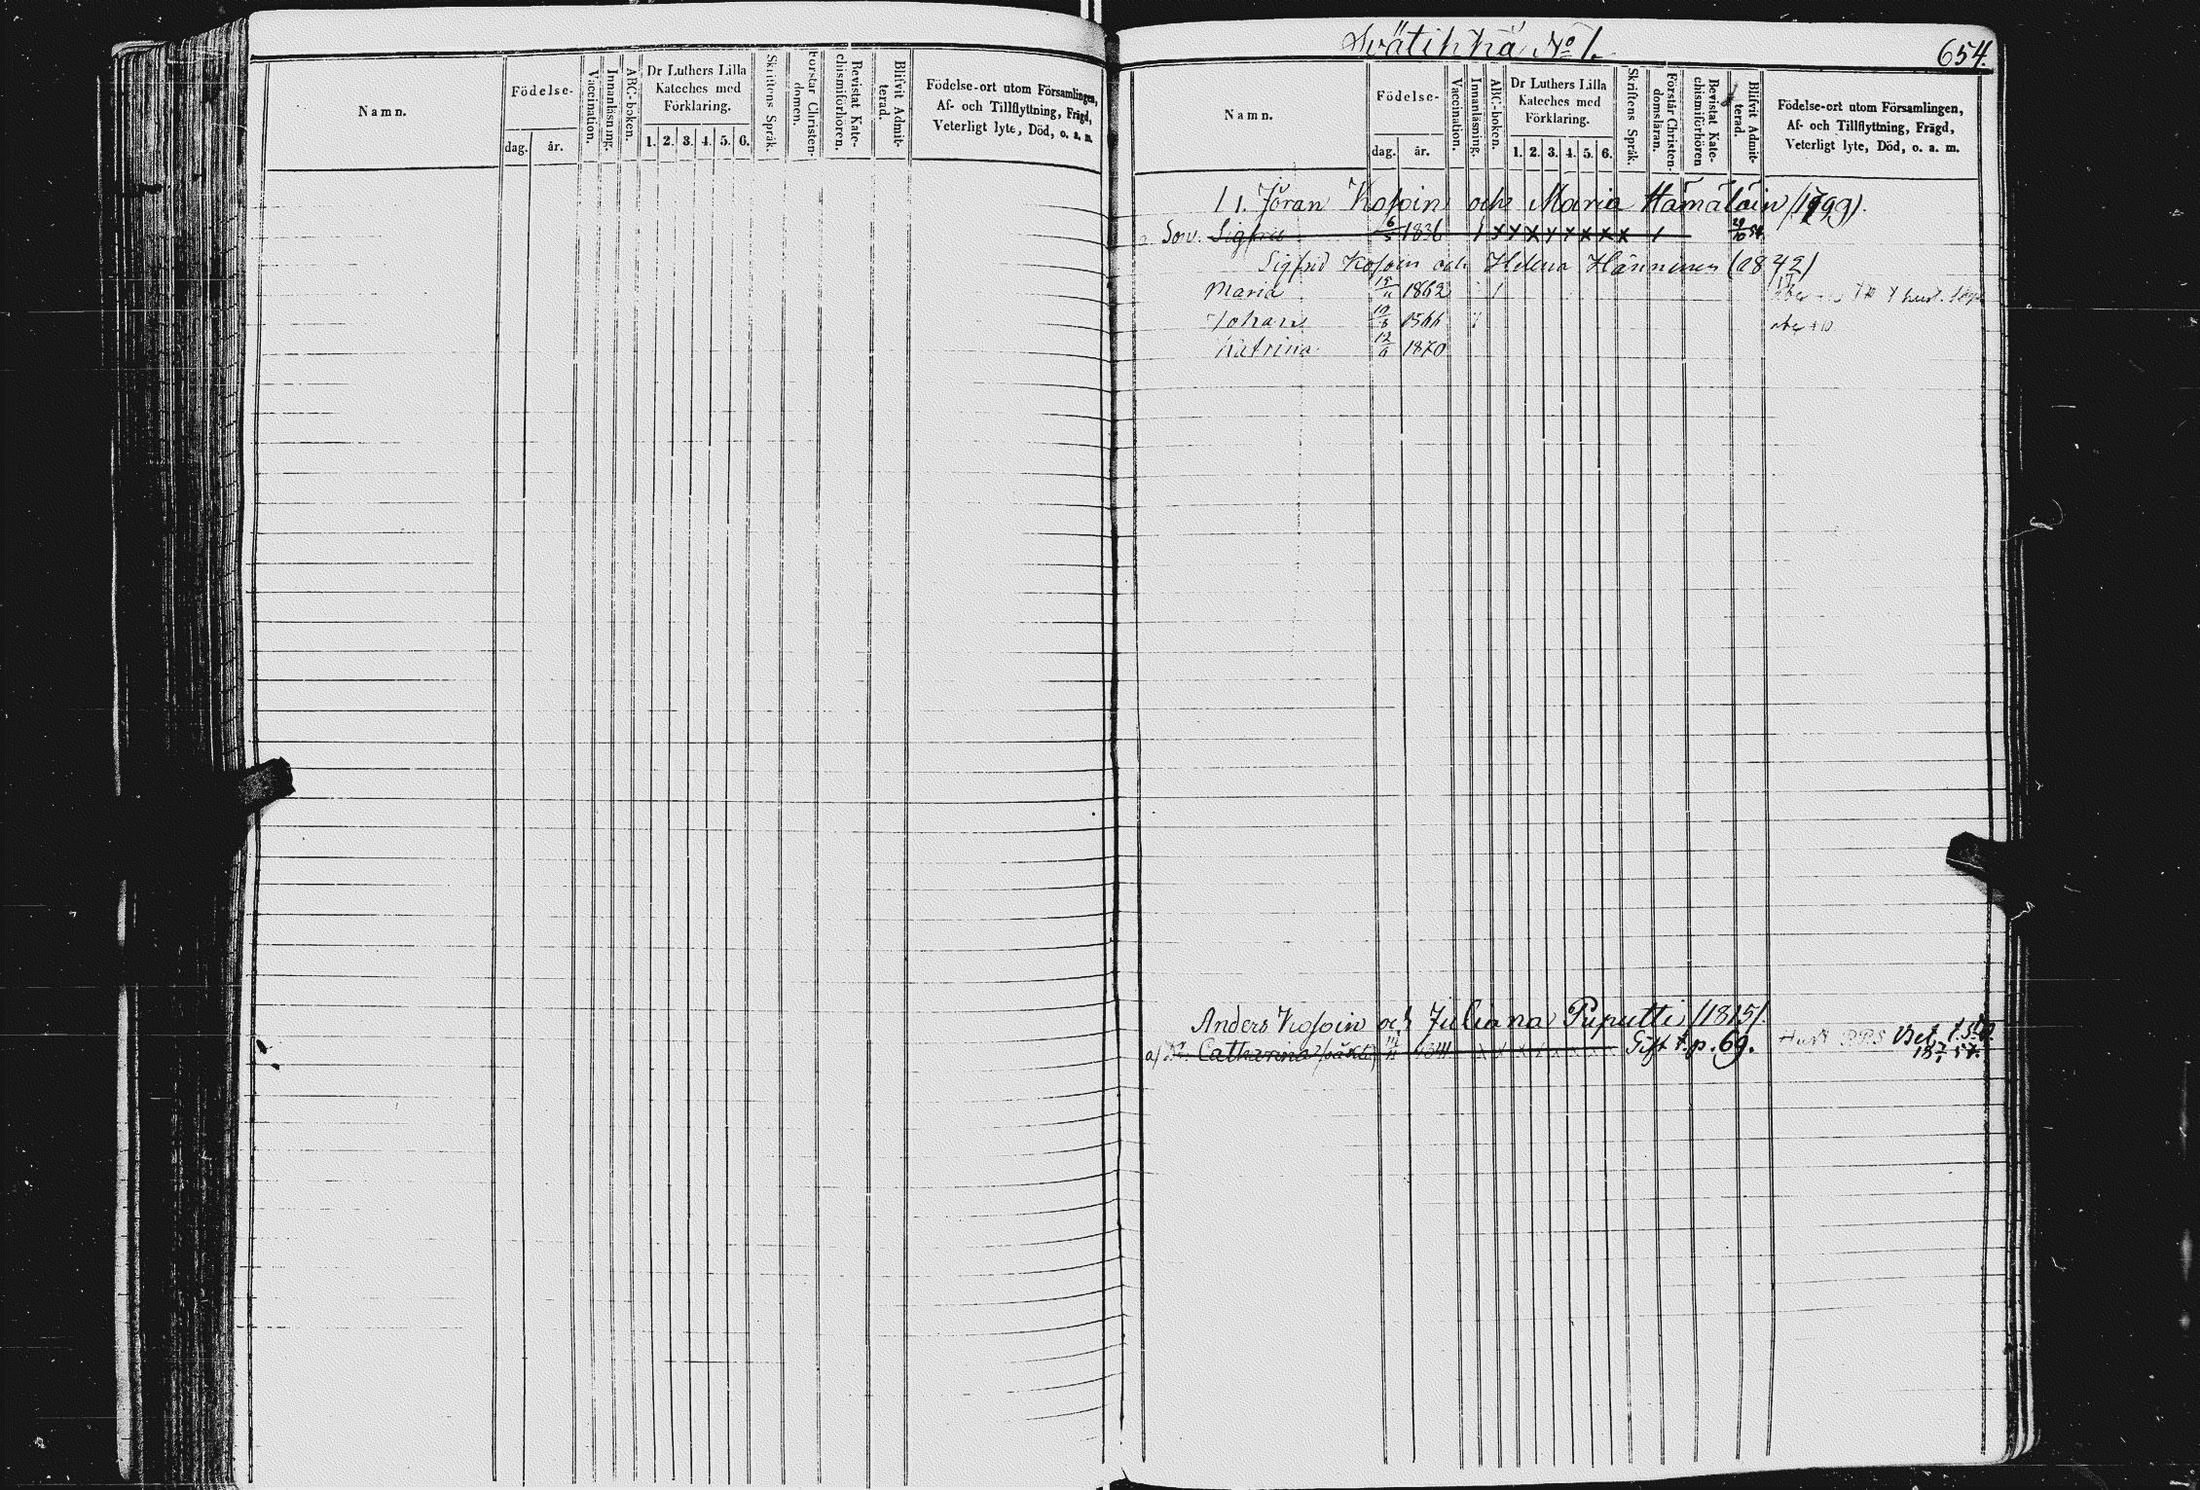 Namn.
Födelse-
dag.
år.
Vaccination.
Innanläsning.
ABC-boken.
Dr Luthers Lilla
Kateches med
Förklaring.
1. 2. 3. 4. 5. 6.
Skriftens Språk.
Förstår Christen-
domen.
Bevistat Kate-
chismiförhören.
Blifvit Admit-
terad.
Födelse-ort utom Församlingen,
Af- och Tillflyttning, Frägd,
Veterligt lyte, Död, o. a. m.
№ 1.
654.
Namn.
Födelse-
dag.
år.
Vaccination.
Innanläsning.
ABC-boken.
Dr Luthers Lilla
Kateches med
Förklaring.
1. 2. 3. 4. 5. 6.
Skriftens Språk.
Förstår Christen-
domsläran.
Bevistat Kate-
chismiförhören
Blifvit Admit-
terad.
Födelse-ort utom Församlingen,
Af- och Tillflyttning, Frägd,
Veterligt lyte, Död, o. a. m.
11. Jöran Kosoin och Maria Hämäläin /1799/.
Son. Sigfrid 6/5 1836
Sigfrid Kosoin och Helena Hänninen (1842)
Maria 1862
Johan 1866
Katrina 12/9 1870
Anders Kosoin och Juliana Puputti /1815/.
a/ Dr. Catharina Gift t. p. 69.